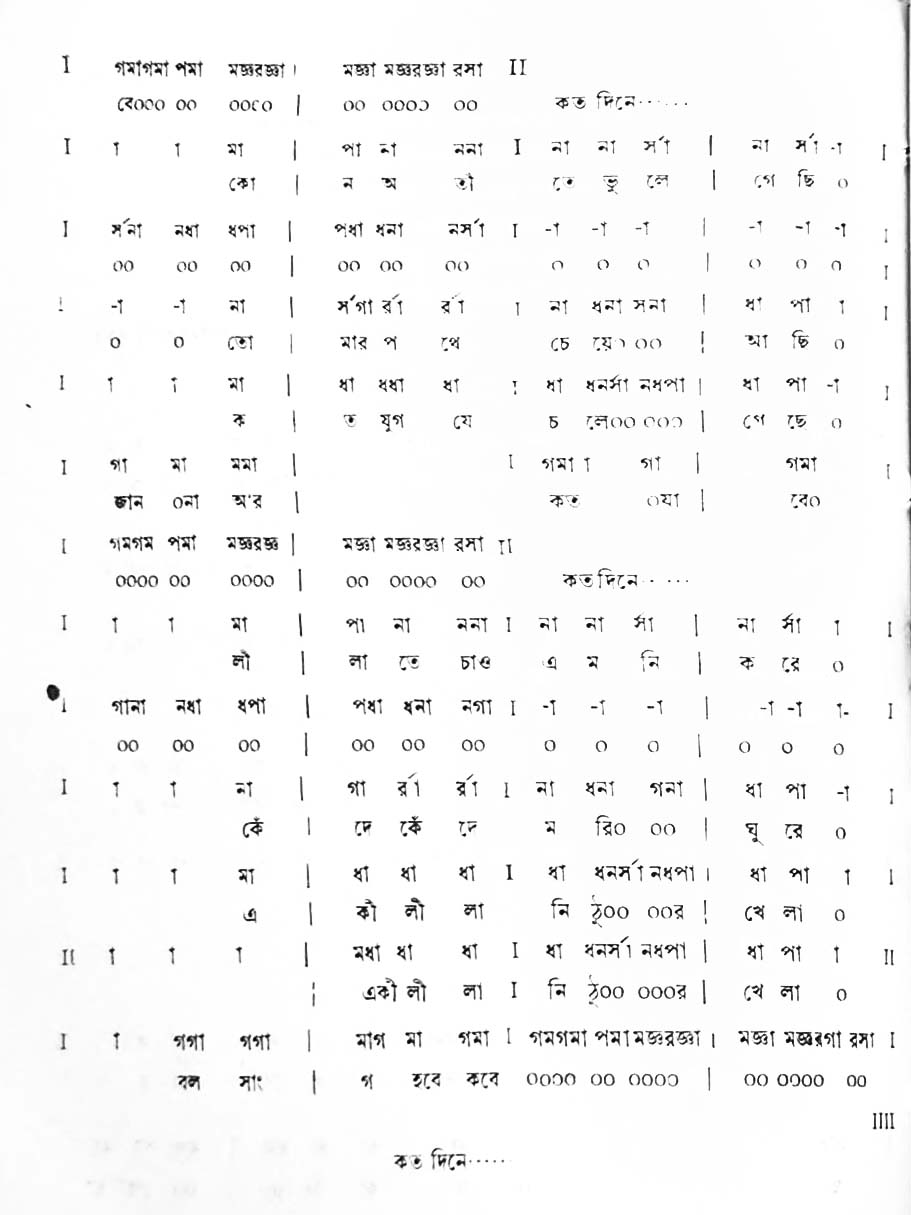 I গমাগমা পমা মজ্ঞরজ্ঞা । মজ্ঞা মজ্ঞরজ্ঞা রসা II
রে০০০ ০০ ০০০০ | ০০ ০০০০ ০০ কত দিনে······
I া া মা | পা না ননা I না না র্সা | না র্সা -া I
কো | ন অ তী তে ভু লে | গে ছি ০
I র্সনা নধা ধপা | পধা ধনা নর্সা I -া -া -া | -া -া -া I
০০ ০০ ০০ | ০০ ০০ ০০ ০ ০ ০ | ০ ০ ০ I
I -া -া না | র্সগা র্রা র্রা I না ধনা সনা | ধা পা া I
০ ০ তো | মার প থে চে য়ে০ ০০ | আ ছি ০
I া া মা | ধা ধধা ধা I ধা ধনর্সা নধপা | ধা পা -া I
ক | ত যুগ যে চ লে০০ ০০০ | গে ছে ০
I গা মা মমা | I গমা া গা | গমা I
জান ০না আ'র | কত ০যা | রে০
I গমগম পমা মজ্ঞরজ্ঞ | মজ্ঞা মজ্ঞরজ্ঞা রসা II
০০০০ ০০ ০০০০ | ০০ ০০০০ ০০ কতদিনে·· ···
I া া মা | পা না ননা I না না র্সা | না র্সা া I
লী | লা তে চাও এ ম নি | ক রে ০
I গানা নধা ধপা | পধা ধনা নগা I -া -া -া | -া -া া- I
০০ ০০ ০০ | ০০ ০০ ০০ ০ ০ ০ | ০ ০ ০
I া া না | গা র্রা র্রা I না ধনা গনা | ধা পা -া I
কেঁ | দে কেঁ দে ম রি০ ০০ | ঘু রে ০
I া া মা | ধা ধা ধা I ধা ধনর্সা নধপা । ধা পা া I
এ | কী লী লা নি ঠু০০ ০০র | খে লা ০
II া া া | মধা ধা ধা I ধা ধনর্সা নধপা | ধা পা া II
| একী লী লা I নি ঠু০০ ০০০র | খে লা ০
I া গগা গগা | মাগ মা গমা I গমগমা পমা মজ্ঞরজ্ঞা । মজ্ঞা মজ্ঞরগা রসা I
বল সাং | গ হবে কবে ০০০০ ০০ ০০০০ | ০০ ০০০০ ০০
IIII
কত দিনে·····